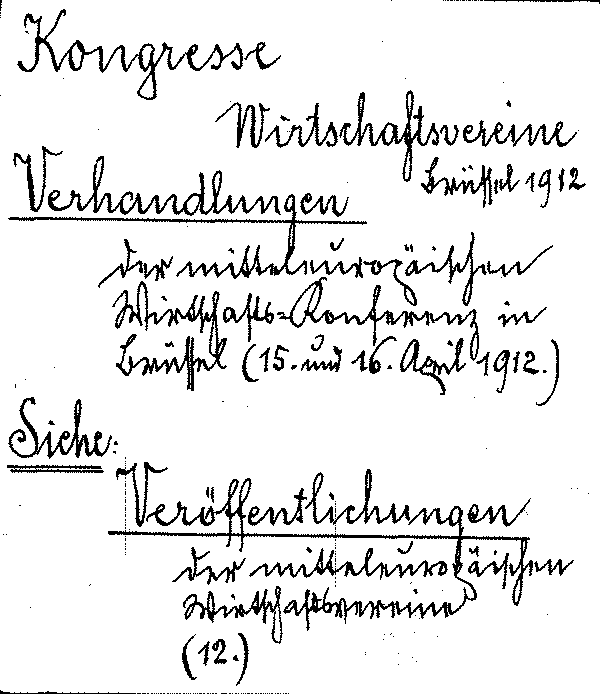 Kongresse
Wirtschaftsvereine
Brüssel 1912
Verhandlungen
der mitteleuropäischen
Wirtschafts=Konferenz in
Brüssel (15. und 16. April 1912.)
Siehe:
Veröffentlichungen
der mitteleuropäischen
Wirtschaftsvereine
(12.)